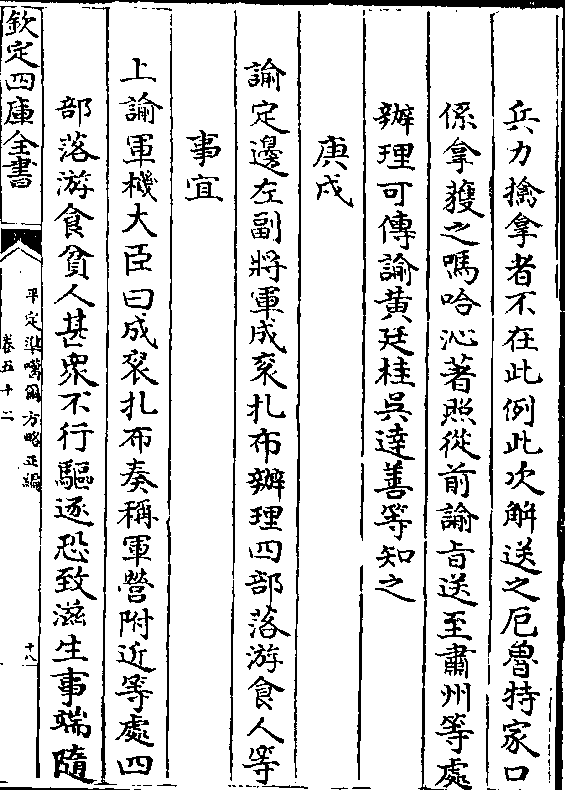 兵力擒拿者不在此例此次解送之厄魯特家口
係拿獲之嗎哈沁著照從前諭旨送至肅州等處
辦理可傳諭黄廷桂吳達善等知之
庚戌
諭定邊左副將軍成衮扎布辦理四部落游食人等
事宜
上諭軍機大臣曰成衮扎布奏稱軍營附近等處四
部落游食貧人甚衆不行驅逐恐致滋生事端隨
欽定四庫全書
平定準噶爾方略正編
卷五十二
十八